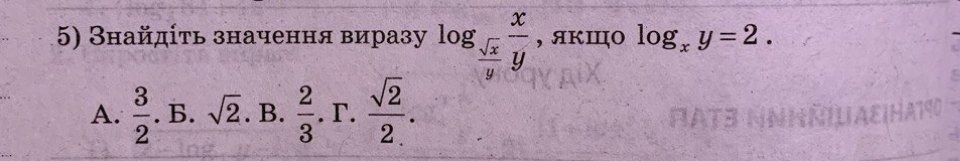 5) Знайдіть значення виразу log_{\frac{\sqrt{x}}{y}} \frac{x}{y}, якщо log_x y = 2.
А. \frac{3}{2}. Б. \sqrt{2}. В. \frac{2}{3}. Г. \frac{\sqrt{2}}{2}.